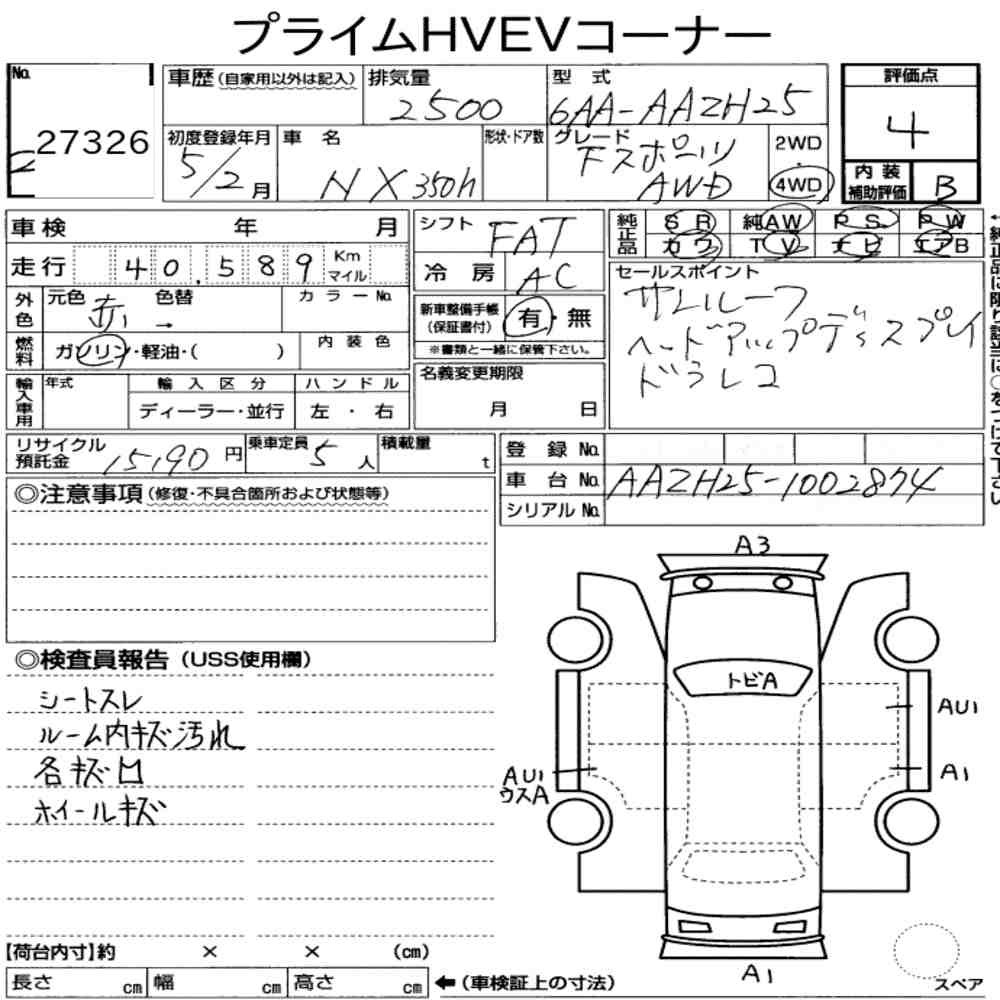 プライムHVEVコーナー
No. 27326
車歴(自家用以外は記入)
排気量 2500
型式 6AA-AAZH25
評価点 4
初度登録年月 5/2月
車名 NX350h
形状・ドア数
グレード Fスポーツ AWD
2WD・4WD
内装補助評価 B
車検 年 月
走行 40,589 Km マイル
シフト FAT
冷房 AC
純正品 SR 純AW P.S. P.W
カワ TV ナビ エアB
←純正品に限り該当に○をつけて下さい
外色 元色 赤 色替 → カラーNo.
燃料 ガソリン・軽油・( ) 内装色
新車整備手帳(保証書付) 有・無
※書類と一緒に保管下さい。
セールスポイント
サンルーフ
ヘッドアップディスプレイ
ドラレコ
輸入車用 年式 輸入区分 ハンドル
ディーラー・並行 左・右
名義変更期限 月 日
リサイクル預託金 15190円
乗車定員 5人
積載量 t
登録No.
車台No. AAZH25-1002874
シリアルNo.
◎注意事項(修復・不具合箇所および状態等)
◎検査員報告(USS使用欄)
シートスレ
ルーム内キズ汚れ
各キズ凹
ホイールキズ
A3
トビA
AU1
A1
AU1
ウスA
A1
スペア
【荷台内寸】約 × × (cm)
長さ cm 幅 cm 高さ cm
←(車検証上の寸法)